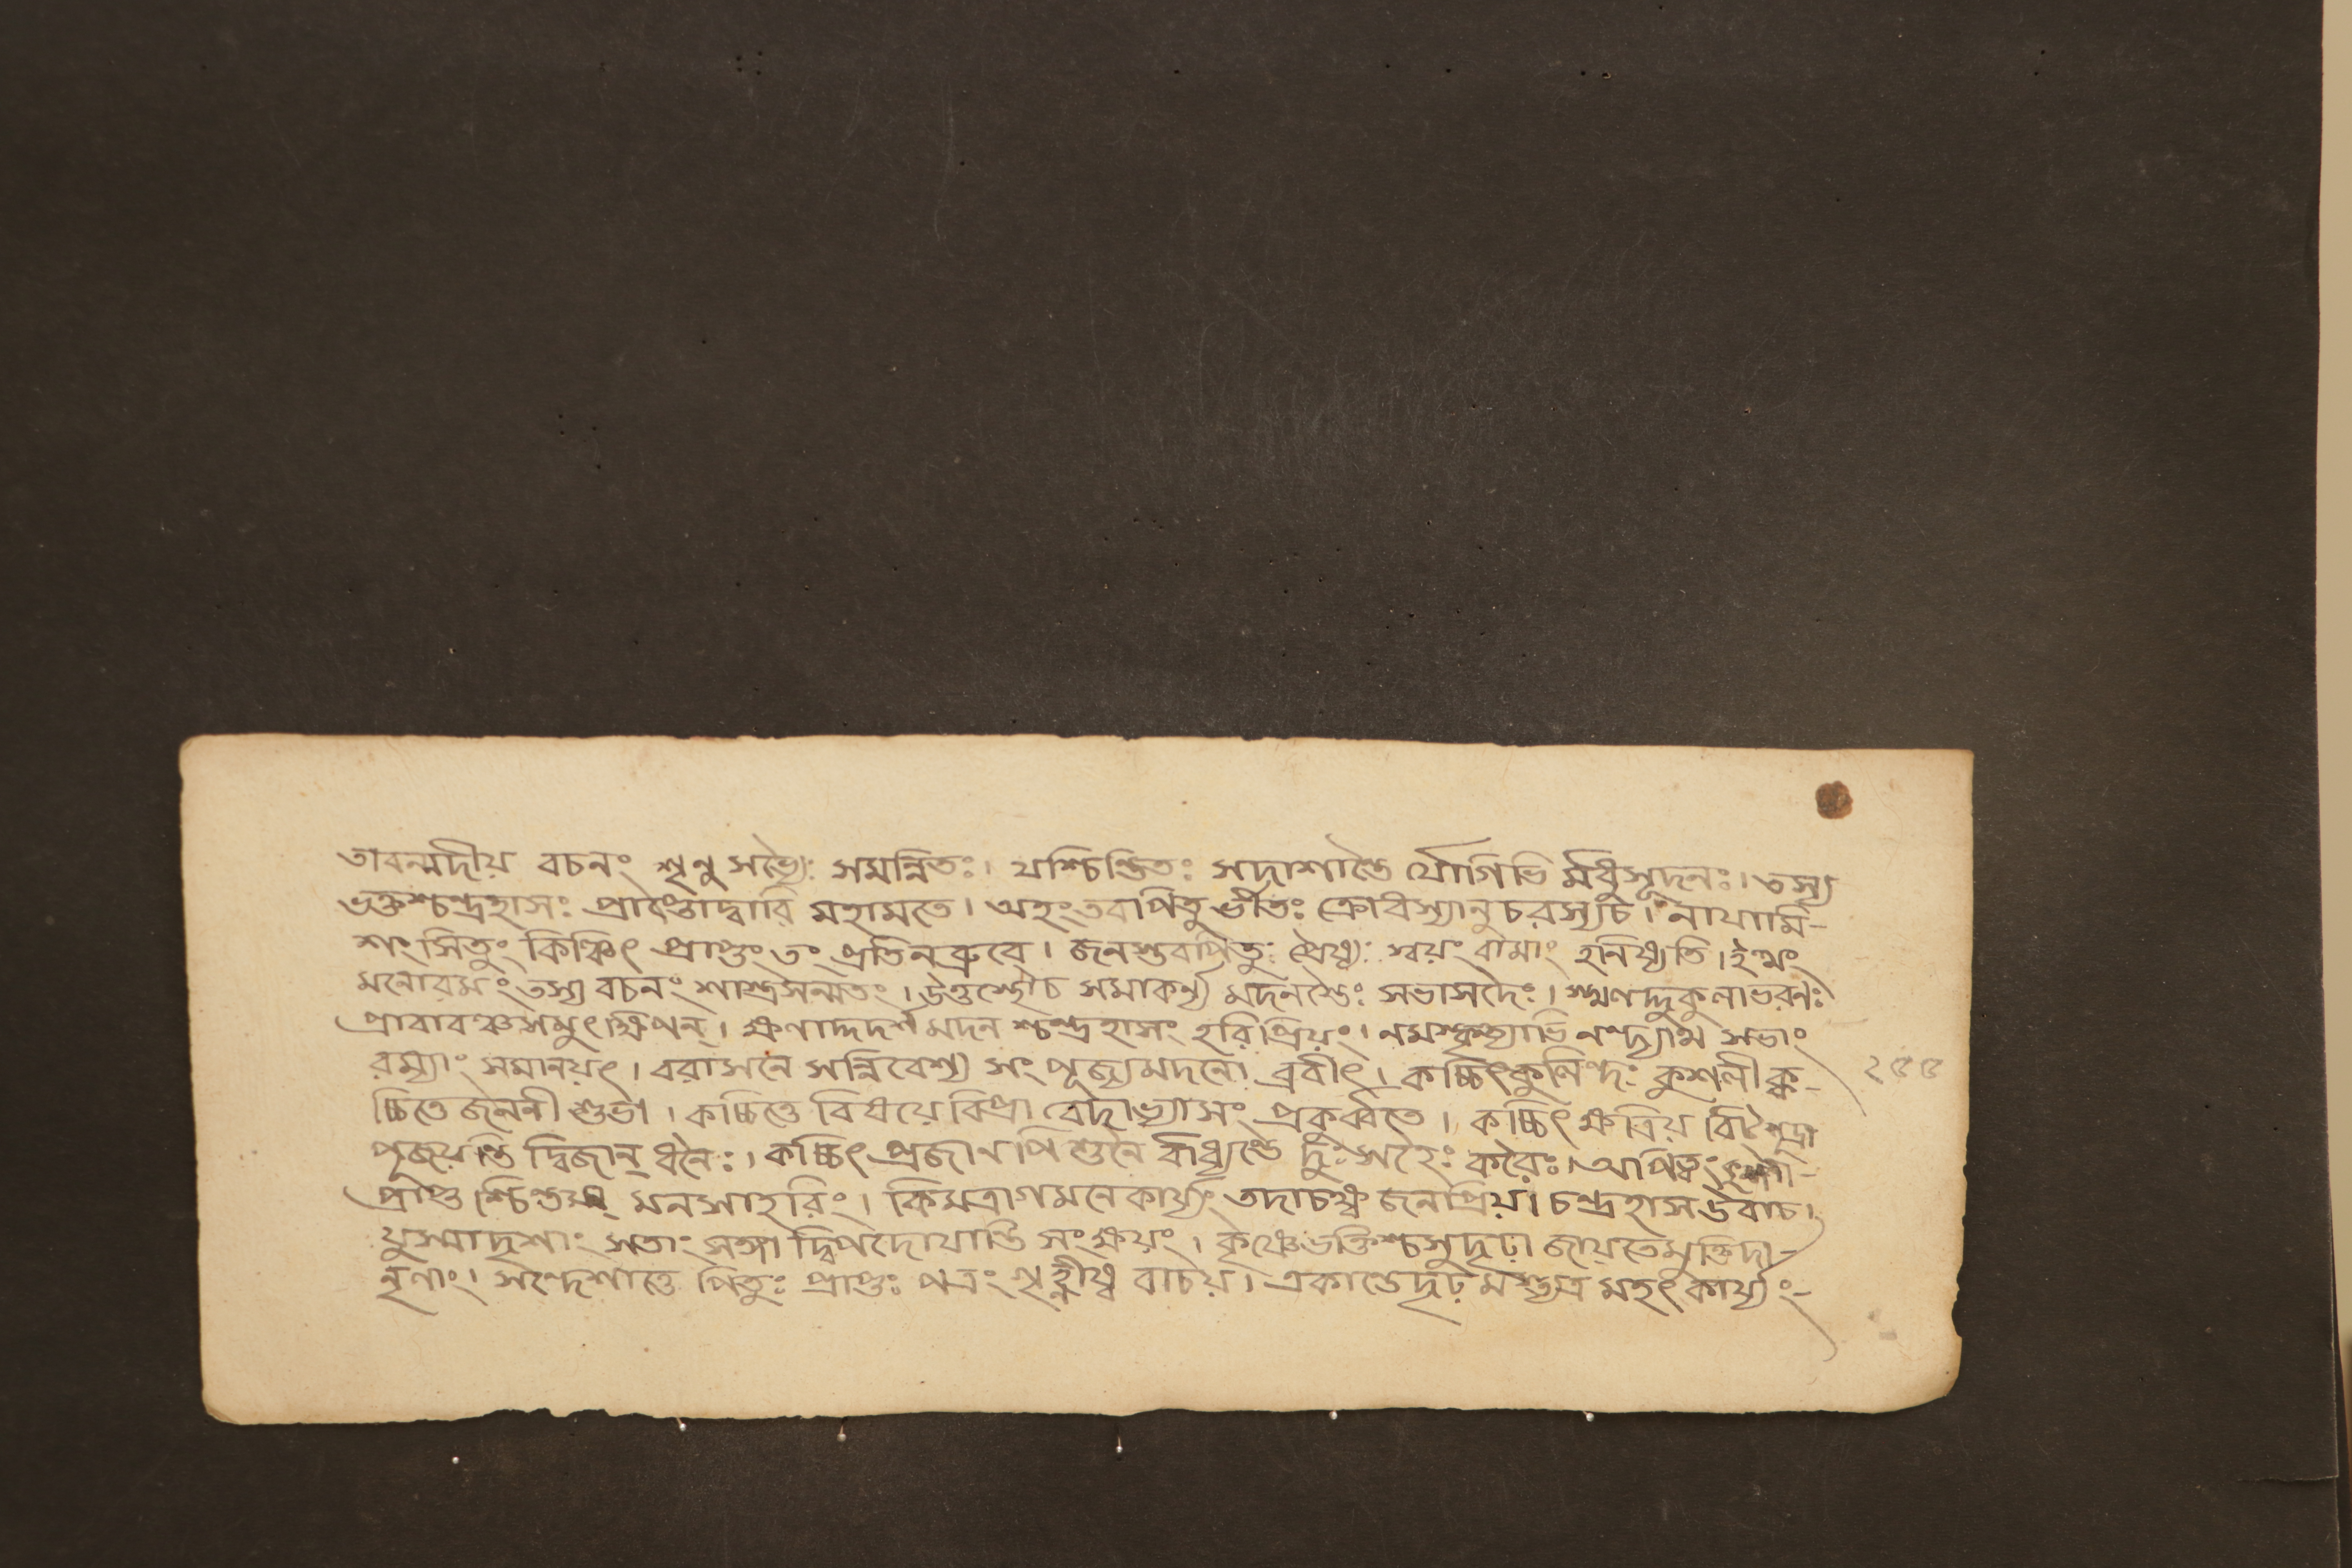 তাবন্মদীয় বচনং শৃনু সভ্যৈঃ সমন্নিতঃ। যশ্চিন্তিতঃ সদাশান্তৈ র্যোগিভি র্মধুসূদনঃ। তস্য
ভক্তশ্চন্দ্রহাসঃ প্রাপ্তোদ্বারি মহামতে। অহং তবপিতু র্ভীতঃ ক্রোধস্যানুচরস্যচ। নাযামি-
শংসিতুং কিঞ্চিৎ প্রাপ্তং তং প্রতিনব্রুবে। জনস্তবপিতুঃ প্রৈষ্যঃ স্বয়ং বামাং হনিষ্যতি। ইত্থং
মনোরমং তস্য বচনং শাস্ত্রসন্মতং। সমাকর্ণ্য মদনস্তৈঃ সভাসদৈঃ।
সমুৎক্ষিপন্। ক্ষণাদ্দদর্শ মদন শ্চন্দ্রহাসং হরিপ্রিয়ং। নমস্কৃত্যাভিনন্দ্যাথ সভাং
রম্যাং সমানয়ৎ। বরাসনে সন্নিবেশ্য সংপূজ্যমদনো ব্রবীৎ। কচ্চিৎকুলিন্দঃ কুশলী ক-
চ্চিতে জননী শুভা। কচ্চিত্তে বিষয়ে বিপ্রা বেদাভ্যাসং প্রকুর্ব্বতে। কচ্চিৎ ক্ষত্রিয় বিট্শূদ্রা
পূজয়ন্তি দ্বিজান্ ধনৈঃ। কচ্চিৎ প্রজাণপিশুনৈ র্বাধ্যন্তে দুঃসহৈঃ করৈঃ। আপিত্বং
প্রাপ্ত শ্চিন্তয়ন্ মনসাহরিং। কিমত্রাগমনেকার্য্যং তদাচক্ষ্ব জনপ্রিয়। চন্দ্রহাস উবাচ।
যুস্মাদৃশাং সতাং সঙ্গা দ্বিপদোযান্তি সংক্ষয়ং। কৃষ্ণেভক্তিশ্চসুদৃঢ়া জায়তেমুক্তিদা-
নৃণাং। সন্দেশাত্তে পিতুঃ প্রাপ্তঃ পত্রং গৃহ্নীষ্ব বাচয়। একান্তেদৃঢ় মস্ত্যত্র মহৎ কার্য্যং-
২৫৫